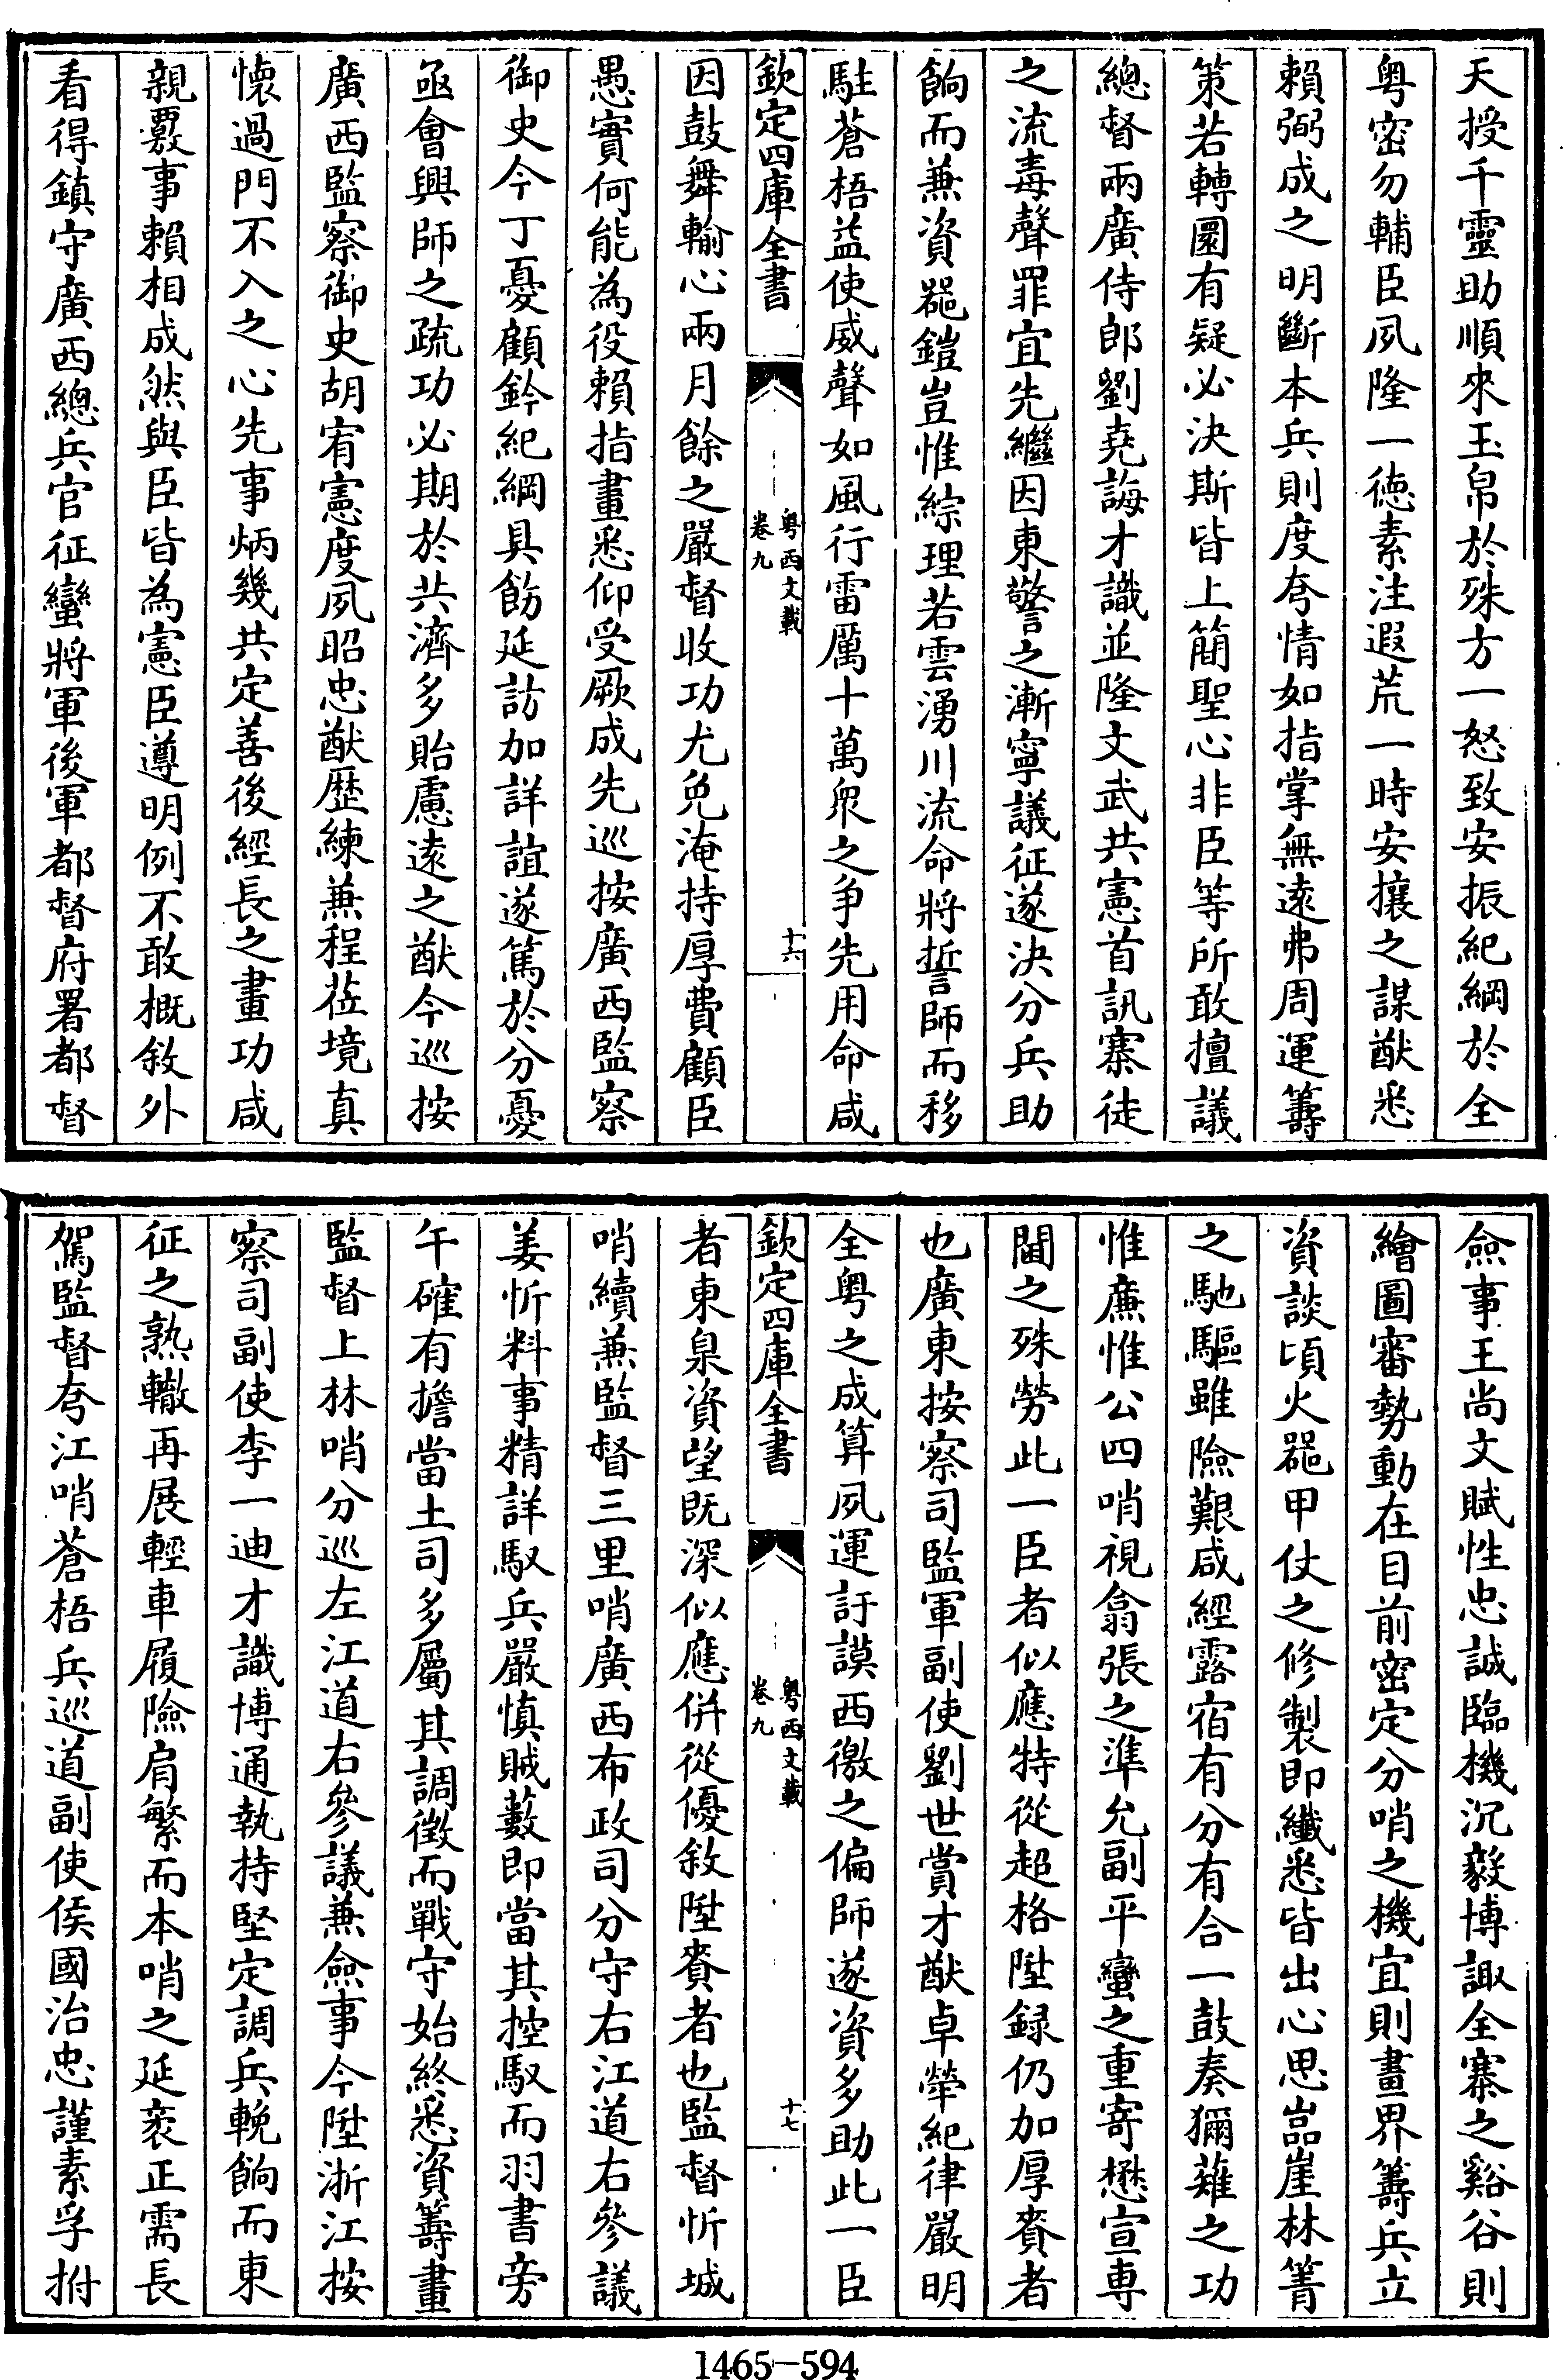 天授千靈助順來玉帛於殊方一怒致安振紀綱於全
粤密勿輔臣夙隆一徳素注遐荒一時安攘之謀猷悉
賴弼成之明斷本兵則度夸情如指掌無遠弗周運籌
策若轉圜有疑必決斯皆上簡聖心非臣等所敢擅議
總督兩廣侍郎劉堯誨才識並隆文武共憲首訊寨徒
之流毒聲罪宜先繼因東警之漸寧議征遂決分兵助
餉而兼資器鎧豈惟綜理若雲湧川流命將誓師而移
駐蒼梧益使威聲如風行雷厲十萬衆之争先用命咸
欽定四庫全書
粤西文載
卷九
十六
因鼓舞輸心兩月餘之嚴督收功尤免淹持厚費顧臣
愚實何能為役賴指畫悉仰受厥成先巡按廣西監察
御史今丁憂顧鈐紀綱具飭延訪加詳誼遂篤於分憂
亟會興師之疏功必期於共濟多貽慮逺之猷今巡按
廣西監察御史胡宥憲度夙昭忠猷歴練兼程莅境真
懷過門不入之心先事炳幾共定善後經長之畫功咸
親覈事賴相成然與臣皆為憲臣遵明例不敢概敘外
看得鎮守廣西總兵官征蠻將軍後軍都督府署都督
僉事王尚文賦性忠誠臨機沉毅博諏全寨之谿谷則
繪圖審勢動在目前密定分哨之機宜則畫界籌兵立
資談頃火器甲仗之修製即纎悉皆出心思嵓崖林箐
之馳驅雖險艱咸經露宿有分有合一鼓奏獮薙之功
惟亷惟公四哨視翕張之準允副平蠻之重寄懋宣專
閫之殊勞此一臣者似應特從超格陞録仍加厚賚者
也廣東按察司監軍副使劉世賞才猷卓犖紀律嚴明
全粤之成算夙運訏謨西徼之偏師遂資多助此一臣
欽定四庫全書
粤西文載
卷九
十七
者東臬資望既深似應併從優敘陞賚者也監督忻城
哨續兼監督三里哨廣西布政司分守右江道右參議
姜忻料事精詳馭兵嚴慎賊藪即當其控馭而羽書旁
午確有擔當土司多屬其調徴而戰守始終悉資籌畫
監督上林哨分巡左江道右參議兼僉事今陞浙江按
察司副使李一迪才識博通執持堅定調兵輓餉而東
征之熟轍再展輕車履險肩繁而本哨之延袤正需長
駕監督夸江哨蒼梧兵巡道副使侯國治忠謹素孚拊
1465-594